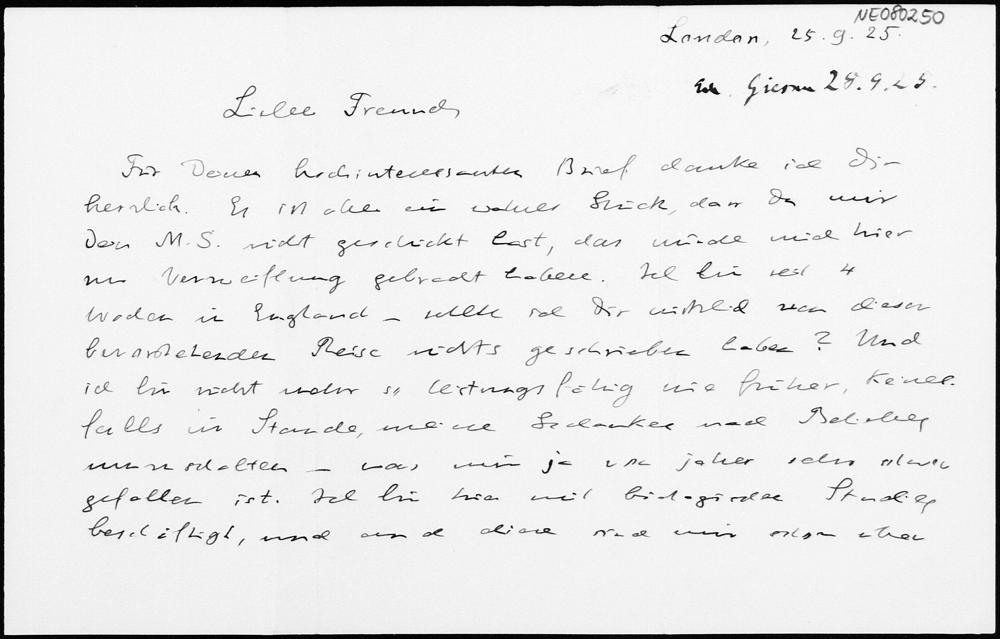 NE080250
London, 25.9.25.
28.9.25.
Lieber Freund,
Für Deinen hochinteressanten Brief danke ich Dir
herzlich. Es ist aber ein wahres Glück, dass Du mir
den M.S. nicht geschickt hast, das würde mich hier
zur Verzweiflung gebracht haben. Ich bin seit 4
Wochen in England – sollte ich Dir wirklich von dieser
bevorstehenden Reise nichts geschrieben haben? Und
ich bin nicht mehr so leistungsfähig wie früher, keines-
falls im Stande, meine Gedanken nach Belieben
umzuschalten – was mir ja von jeher sehr schwer
gefallen ist. Ich bin hier mit biologischen Studien
beschäftigt, und auch diese sind mir schon etwas